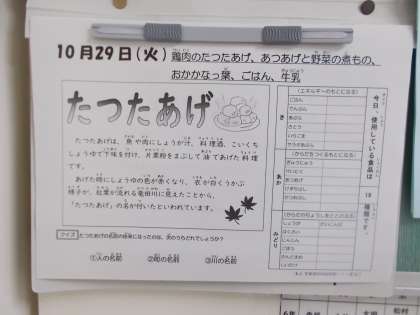 10月29日(火) 鶏肉のたつたあげ、あつあげと野菜の煮もの、
おかかなっ葉、ごはん、牛乳
たつたあげ
たつたあげは、魚や肉にしょうが汁、料理酒、こいくち
しょうゆで下味を付け、片栗粉をまぶして油であげた料理
です。
あげた時にしょうゆの色が赤くなり、衣が白くうかぶ
様子が、紅葉が流れる竜田川に見えたことから、
「たつたあげ」の名が付いたといわれています。
クイズ たつたあげの名前の由来になったのは、次のうちどれでしょうか?
①人の名前 ②町の名前 ③川の名前
今日、使用している食品は
19
種類です。
き
(エネルギーのもとになる)
ごはん
でんぷん
あぶら
さとう
あか
(からだをつくるもとになる)
ぎゅうにゅう
とりにく
あつあげ
みどり
(からだのちょうしをととのえる)
しょうが
はくさい
にんじん
ごぼう